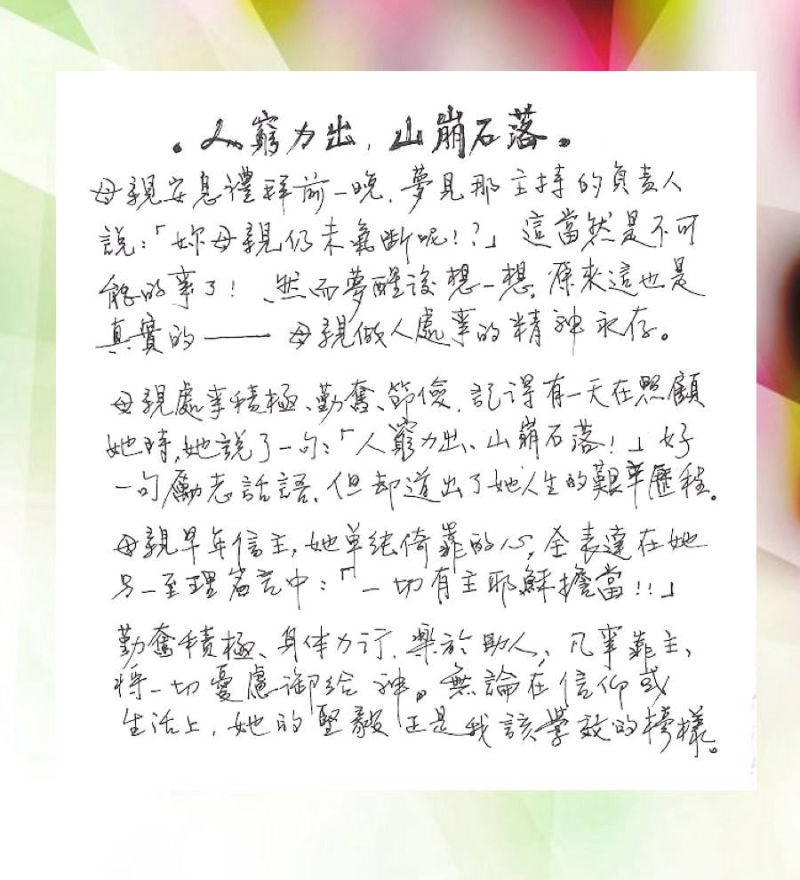 。人窮力出，山崩石落。
母親安息禮拜前一晚，夢見那主持的負責人
說：「妳母親仍未氣斷呢！？」這當然是不可
能的事了！然而夢醒後想一想，原來這也是
真實的——母親做人處事的精神永存。
母親處事積極、勤奮、節儉，記得有一天在照顧
她時，她說了一句：「人窮力出、山崩石落！」好
一句勵志話語，但却道出了她人生的艱辛歷程。
母親早年信主，她单純倚靠的心，全表達在她
另一至理名言中：「一切有主耶穌擔當！！」
勤奮積極、身体力行，樂於助人，凡事靠主，
將一切憂慮卸給神。無論在信仰或
生活上，她的堅毅正是我該學效的榜樣。